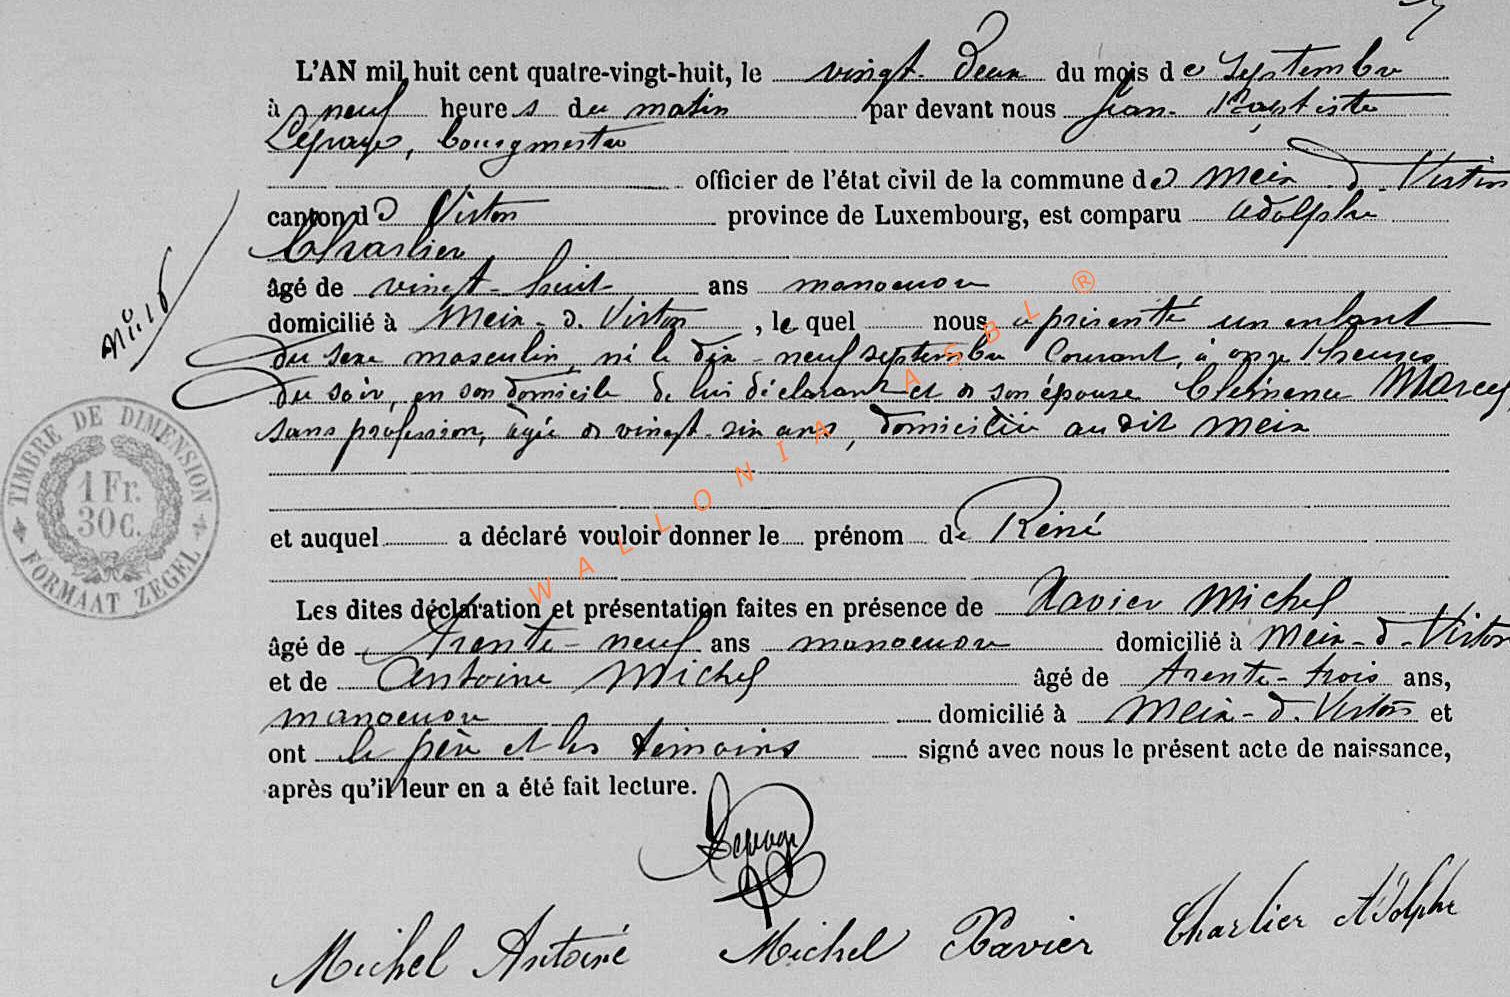 L'AN mil huit cent quatre-vingt-huit, le vingt-deux du mois de Septembre
à neuf heures du matin par devant nous Jean-Baptiste
Lepage, bourgmestre
officier de l'état civil de la commune de Meix-d-Virton
canton de Virton province de Luxembourg, est comparu Adolphe
Charlier
âgé de vingt-huit ans manoeuvre
domicilié à Meix-d.Virton, le quel nous a présenté un enfant
du sexe masculin, né le dix-neuf septembre courant, à onze heures
du soir, en son domicile de lui déclarant et de son épouse Clémence
sans profession, âgée de vingt-six ans, domiciliée au dit Meix
et auquel a déclaré vouloir donner le prénom de Réné
Les dites déclaration et présentation faites en présence de Xavier Michel
âgé de trente-neuf ans manoeuvre domicilié à Meix-d-Virton
et de Antoine Michel âgé de trente-trois ans,
manoeuvre domicilié à Meix-d.Virton et
ont le père et les témoins signé avec nous le présent acte de naissance,
après qu'il leur en a été fait lecture.
Lepage
Michel Antoine Michel Xavier Charlier Adolphe
TIMBRE DE DIMENSION
1 Fr.
30 C.
FORMAAT ZEGEL
WALLONIA ASBL ®